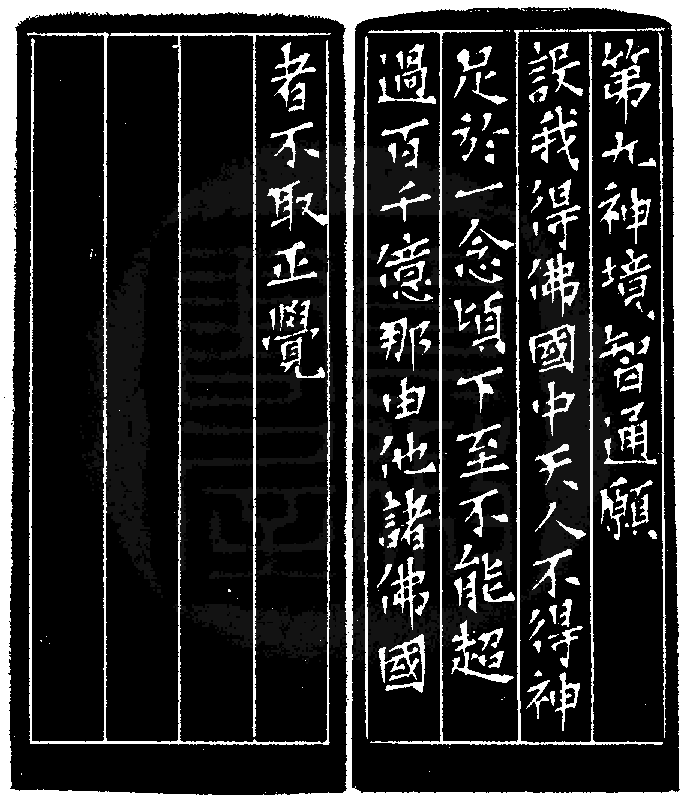 第九神境智通願
設我得佛國中天人不得神
足於一念頃下至不能超
過百千億那由他諸佛國
者不取正覺